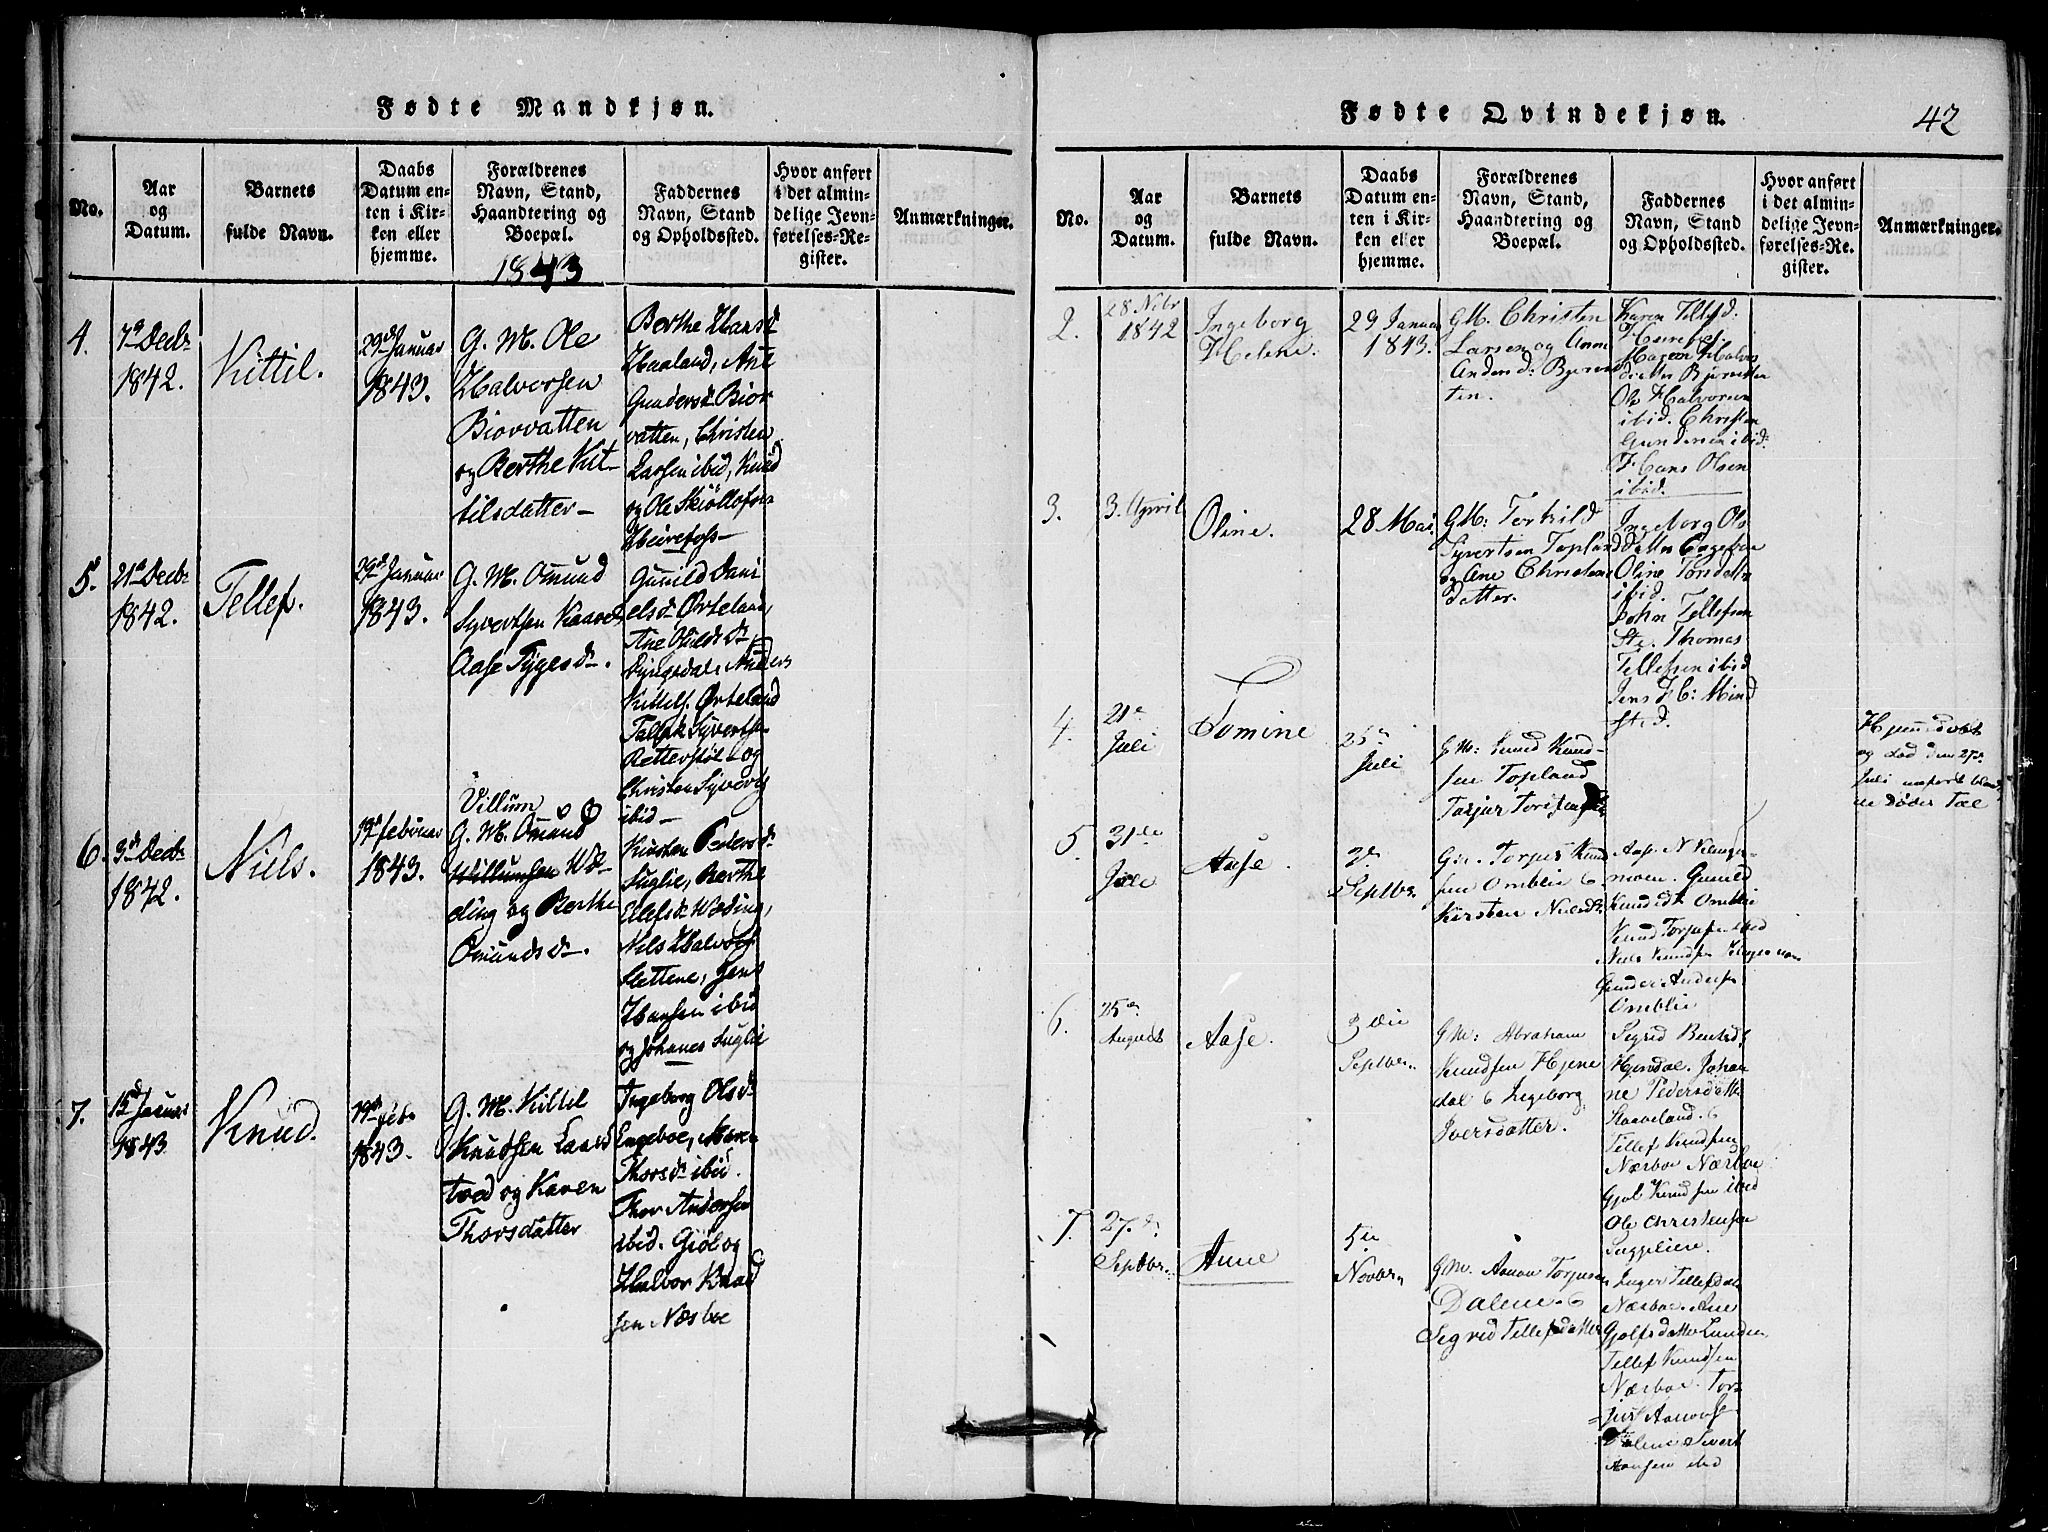 Fødte Mandkjøn.
No.
Aar
og
Datum.
Barnets
fulde Navn.
Daabs
Datum en-
ten i Kir-
ken eller
hjemme.
Forældrenes
Navn, Stand,
Haandtering og
Boepæl.
Faddernes
Navn, Stand
og Opholdssted.
Hvor anført
i det almin-
delige Jevn-
førelses-Re-
gister.
Anmærkninger.
1843
4.
7de Decbr
1842.
Kittil.
29de Januar
1843.
G. M. Ole
Halvorsen
Biorvatten
og Berthe Kit-
tilsdatter
Berthe Hansd
Haaland, Ane
Gundersd Bior
vatten, Christen
Larsen ibid, Knud
og Ole Skiøllofsen
Heirefoss
5.
21de Decbr
1842.
Tellef.
29de Januar
1843.
G. M. Omund
Syvertsen
Aase Tygesd.
Gunild Dani
elsd Ørteland,
Ane
Kittels. Ørteland
Syverts
og
Christen Syverts
ibid
6.
3de Decbr
1842.
Niels.
19de Februar
1843.
Villum
G. M. Omund
Willumsen Wæ
ding og Berthe
Omundsd.
Kirsten Pedersd
Suglie, Berthe
Ellefsd Wæding,
Niels Halvors
Slettene, Jens
Hansen ibid
og Johanes Suglie
7.
15de Januar
1843
Knud.
19de Feb.
1843.
G. M. Kittel
Knudsen
tved og Karen
Thorsdatter
Ingeborg Olsd
Engeboe, Maren
Thorsd ibid.
Thor Andersen
ibid. Giøl og
Halvor Knud
sen Næsboe
Fødte Qvindekjøn.
42
No.
Aar
og
Datum.
Barnets
fulde Navn.
Daabs
Datum en-
ten i Kir-
ken eller
hjemme.
Forældrenes
Navn, Stand,
Haandtering og
Boepæl.
Faddernes
Navn, Stand
og Opholdssted.
Hvor anført
i det almin-
delige Jevn-
førelses-Re-
gister.
Anmærkninger.
2.
28 Nvbr
1842
Ingeborg
Helene.
29 Januar
1843.
GM. Christen
Larsen og Anne
Andersd: Bjorvat
ten.
Karen Tellefd.
Heirefos.
Maren Halvs
datter Bjorvatten
Ole Halvorsen
ibid. Christen
Gundersen ibid.
Hans Olsen
ibid.
3.
3. April
Oline.
28 Mai
GM: Terkild
Syvertsen Topland
og Ane Christens
datter.
Ingeborg Ols
datter Engeboe
Oline Torsdatter
ibid.
John Tellefsen
Thomas
Tellefsen ibid
Jens
4.
21de
Juli
Tomine
25de
Juli
GM: Knud Knud-
sen Topland
Hjemmedøbt
og død den 27de
Juli anført blandt
de Døde
5.
31de
Juli
Aase.
3de
Septbr
GM. Torjus Knud
sen Omblie &
Kirsten Nielsd
Aase N
moen. Gunild
Knudsdt Omblie
Knud Torjusen ibid
Niels Knudsen
Gunder Andersen
Omblie
6.
25de
August
Aase.
3die
Septbr
GM: Abraham
Knudsen Hjene
dal & Ingeborg
Iversdatter.
Sigrid Bentsd
Hjendal. Johan
ne Pedersdatter
Tellef Knudsen
Næsboe
Gjøl Knudsen ibid
Ole Christensen
7.
27de
Septbr
Anne
5te
Novbr
GM. Aanon Torjusen
Dalene. &
Sigrid Tellefsdatter
Inger Tellefsdat
Næsboe. Ane
Gjølfsdatter
Tellef Knudsen
Næsboe. Tor-
jus Aanons
Dalene Sivert
ibid